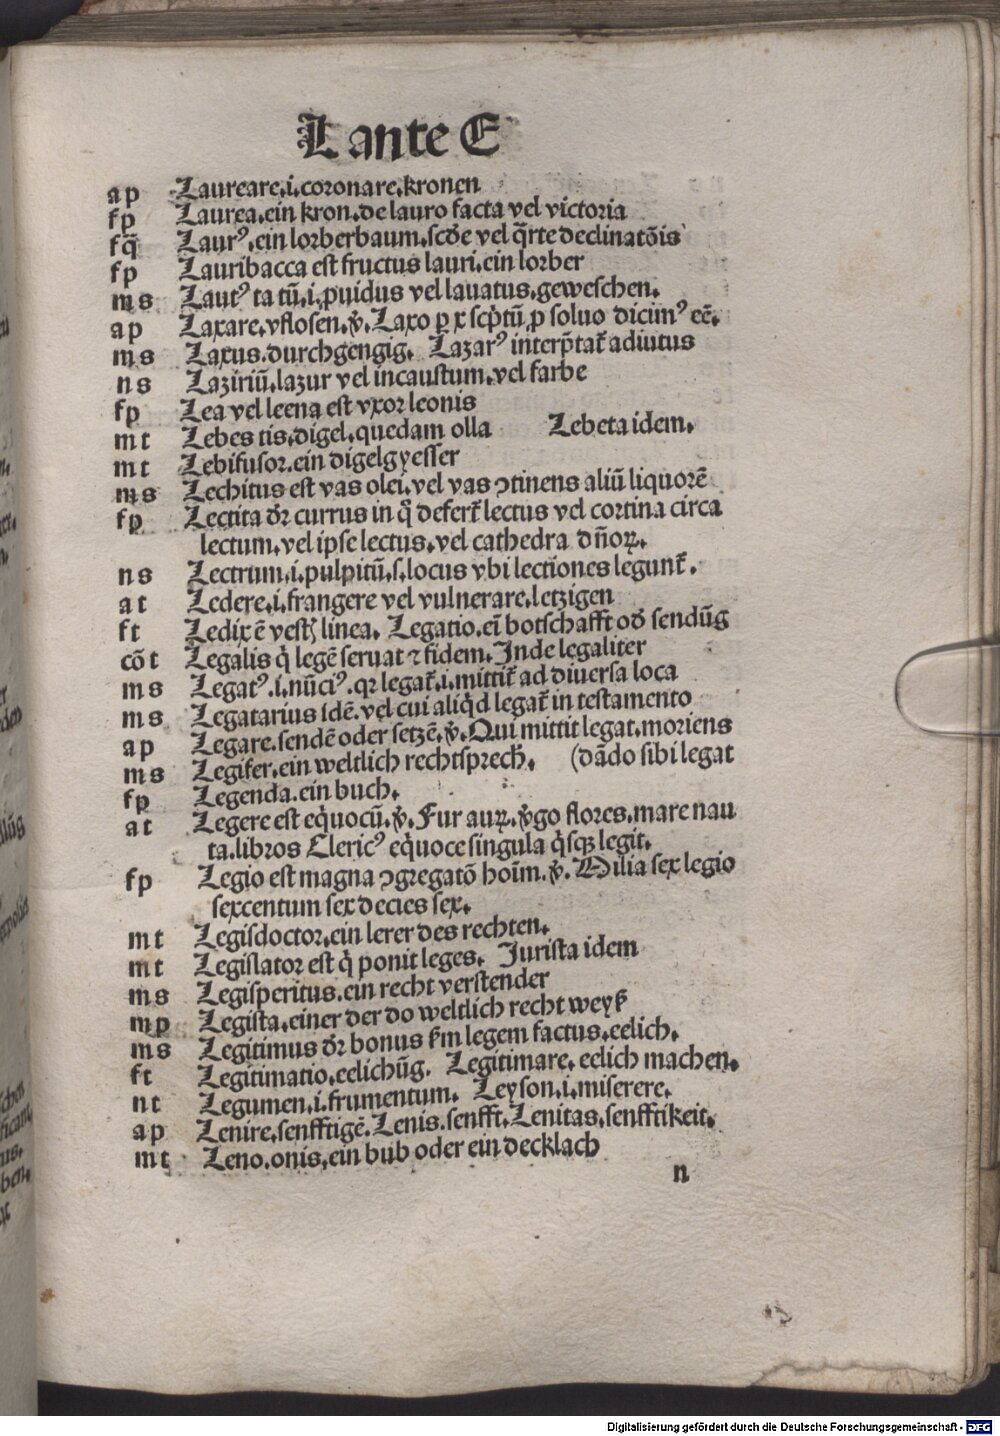 L ante E
a p Laureare.i.coronare.kronen
f p Laurea.ein kron.de lauro facta vel victoria
f q̄ Laurꝰ.ein lorberbaum.scďe vel q̄rte declinatōis
f p Lauribacca est fructus lauri.ein lorber
m s Lautꝰ ta tū.i.ꝓuidus vel lauatus.geweschen.
a p Laxare.vflosen.v̉.Laxo ꝑ x scp̄tū ꝓ soluo dicimꝰ eē.
m s Laxus.durchgengig. Lazarꝰ interp̄tat̄ adiutus
n s Laziriū.lazur vel incaustum.vel farbe
f p Lea vel leena est vxor leonis
m t Lebes tis.digel.quedam olla Lebeta idem.
m t Lebifusor.ein digelgyesser
m s Lechitus est vas olei.vel vas ꝯtinens aliū liquorē
f p Lectita dr̄ currus in q̊ defert̄ lectus vel cortina circa
lectum.vel ipse lectus.vel cathedra dn̄oꝝ.
n s Lectrum.i.pulpitū.s.locus vbi lectiones legunt̄.
a t Ledere.i.frangere vel vulnerare.letzigen
f t Ledix ē vestꝭ linea. Legatio.ei botschafft oď sendūg
cō t Legalis q̇ legē seruat ⁊ fidem.Inde legaliter
m s Legatꝰ.i.nūciꝰ.qꝛ legat̄.i.mittit̄ ad diuersa loca
m s Legatarius idē.vel cui aliq̇d legat̄ in testamento
a p Legare.sendē oder setzē.v̉.Qui mittit legat.moriens
m s Legifer.ein weltlich rechtsprech̄. (dādo sibi legat
f p Legenda.ein buch.
a t Legere est eq̇uocū.v̉.Fur auꝝ.v̉go flores.mare nau
ta.libros Clericꝰ eq̇uoce singula q̇sqꝫ legit.
f p Legio est magna ꝯgregatō hoīm.v̉.Milia sex legio
sexcentum sex decies sex.
m t Legisdoctor.ein lerer des rechten.
m t Legislator est q̇ ponit leges. Jurista idem
m s Legisperitus.ein recht verstender
m p Legista.einer der do weltlich recht weyß
m s Legitimus dr̄ bonus ẜm legem factus.eelich.
f t Legitimatio.eelichūg. Legitimare.eelich machen.
n t Legumen.i.frumentum. Leyson.i.miserere.
a p Lenire.senfftigē.Lenis.senfft.Lenitas.senfftikeit.
m t Leno.onis.ein bub oder ein decklach
n
Digitalisierung gefördert durch die Deutsche Forschungsgemeinschaft - DFG